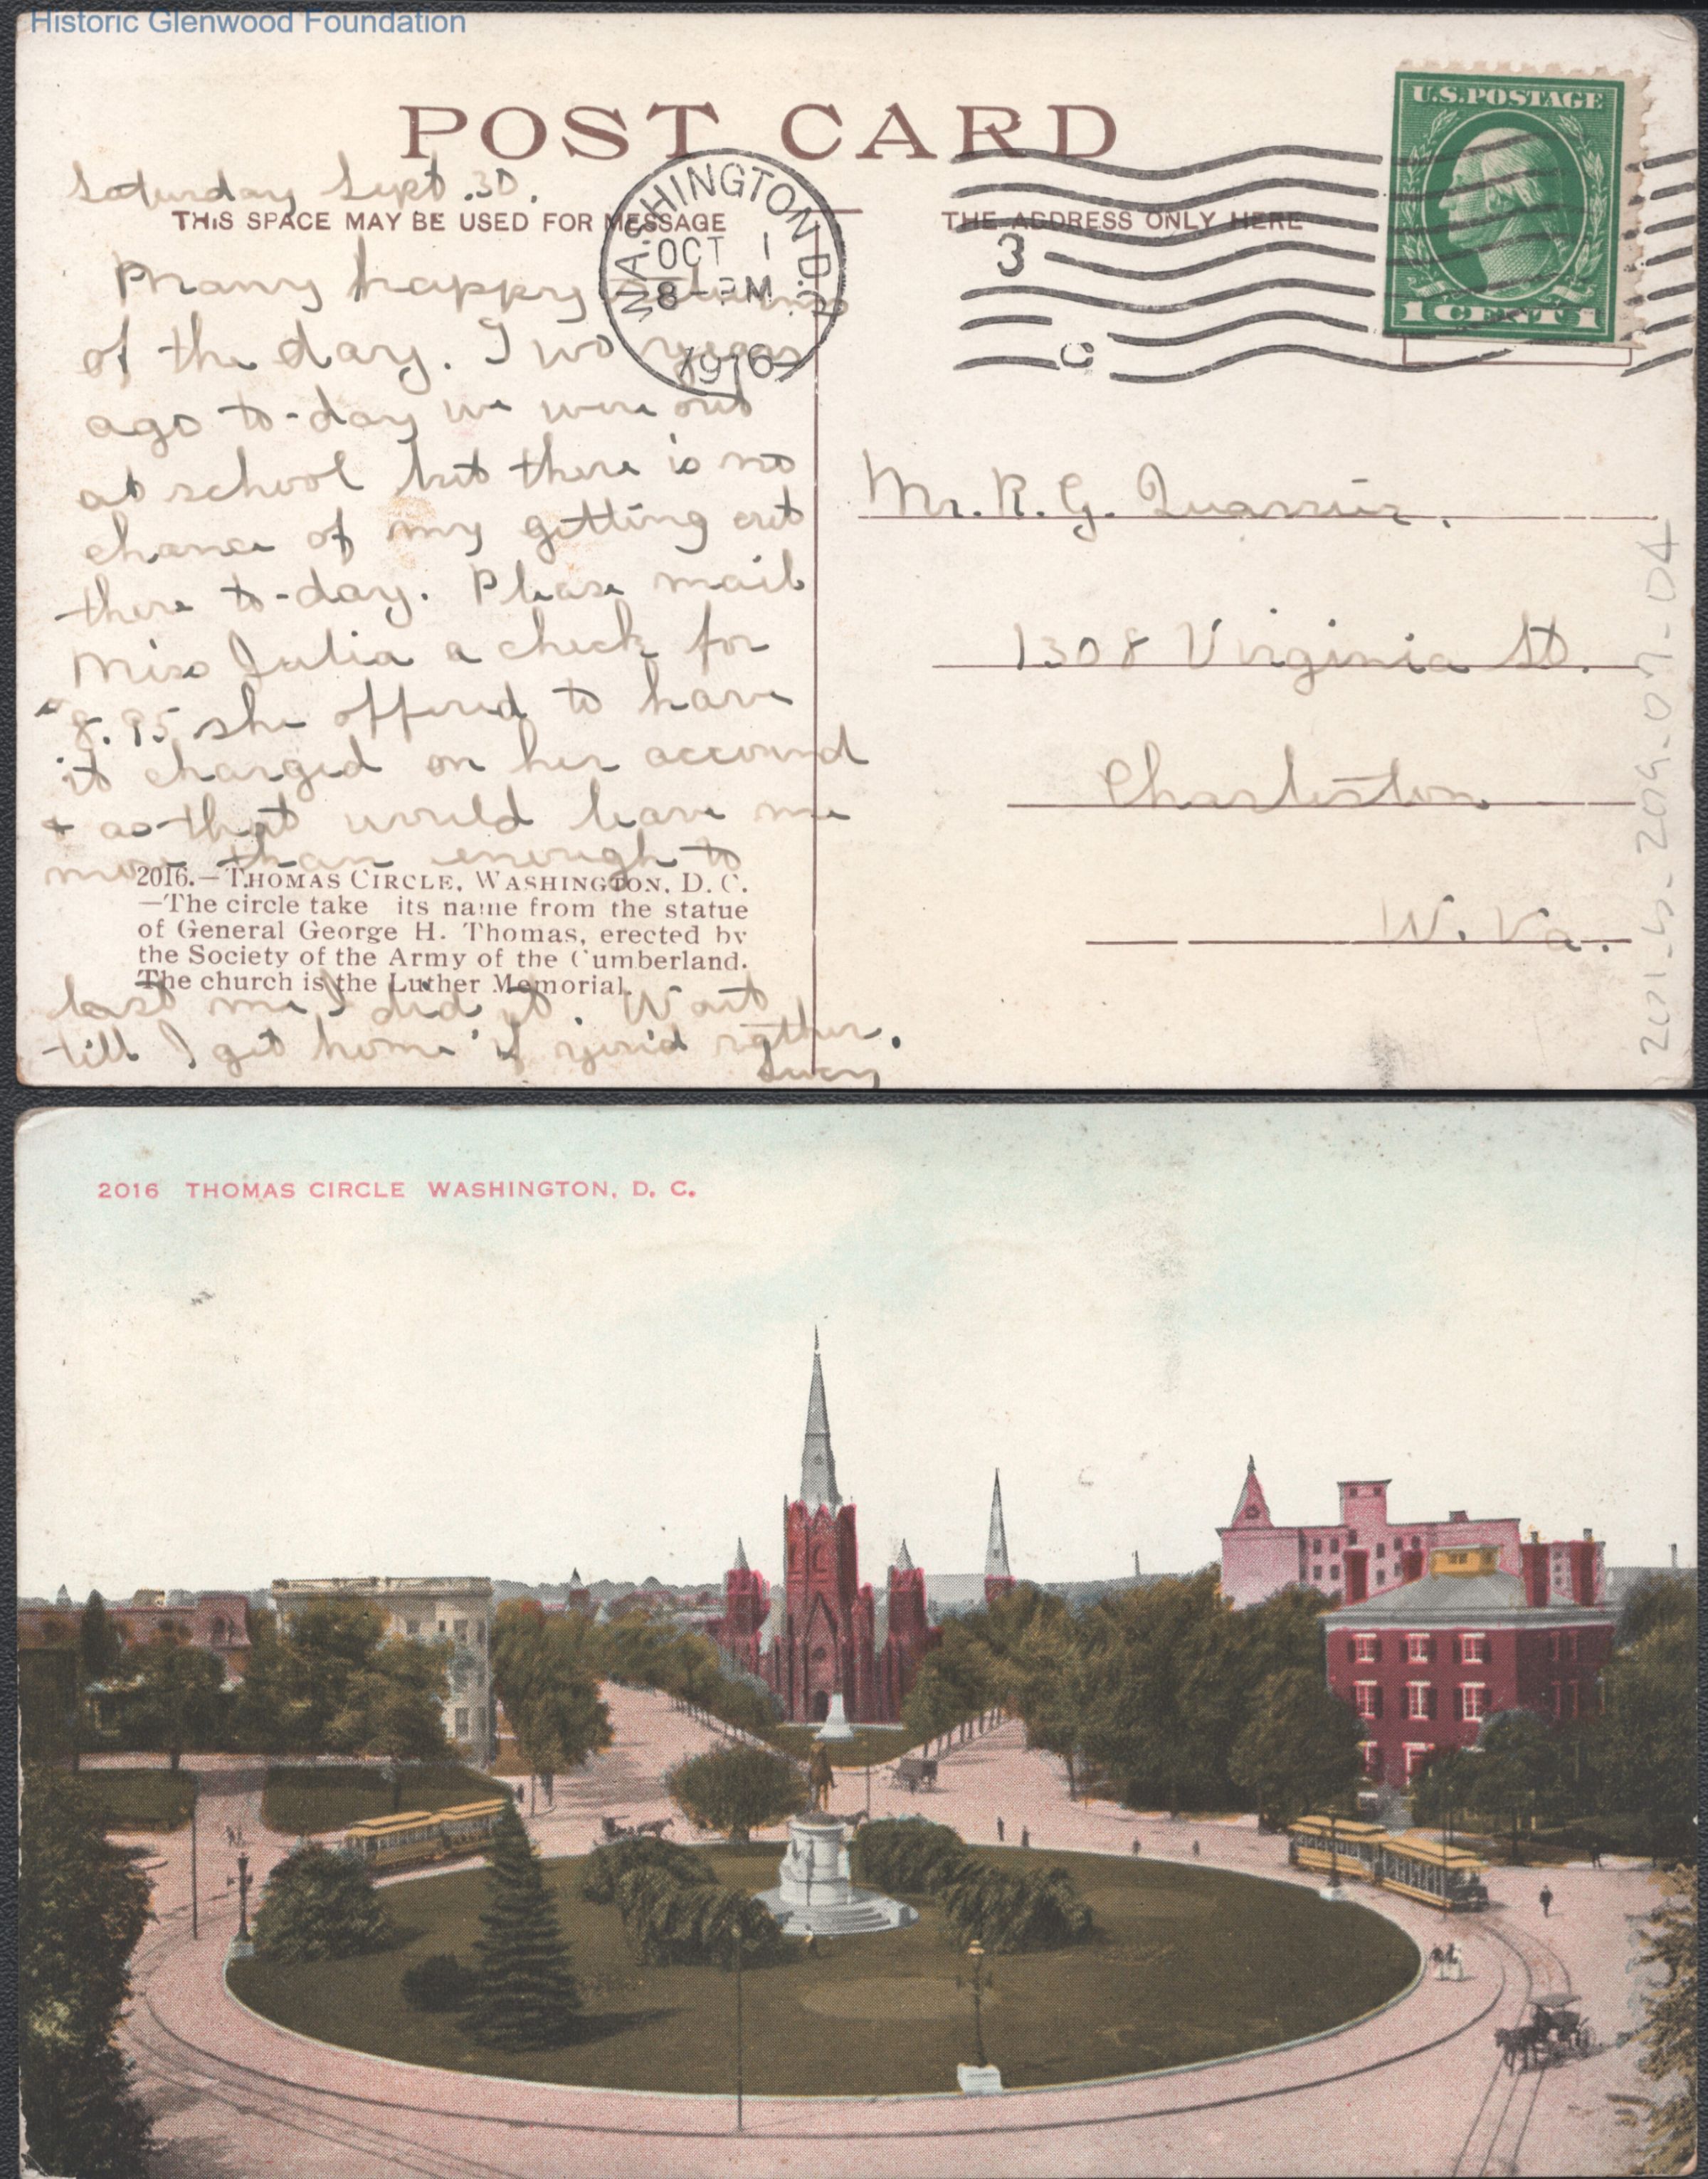 Historic Glenwood Foundation
POST CARD
Saturday Sept. 30.
THIS SPACE MAY BE USED FOR MESSAGE
THE ADDRESS ONLY HERE
WASHINGTON, D.C.
OCT 1
8-PM
1916
3
C
U.S. POSTAGE
1 CENT 1
Many happy returns
of the day. Two years
ago to-day we were out
at school but there is no
chance of my getting out
there to-day. Please mail
Miss Julia a check for
8.95 she offered to have
it charged on her account
+ as that would leave me
more than enough to
2016.—THOMAS CIRCLE, WASHINGTON, D. C.
—The circle take its name from the statue
of General George H. Thomas, erected by
the Society of the Army of the Cumberland.
The church is the Luther Memorial.
last me I did it. Wait
till I get home if you'd rather.
Lucy
Mr. R. G. Quarrier.
1308 Virginia St.
Charleston
W. Va.
2016 THOMAS CIRCLE WASHINGTON, D. C.